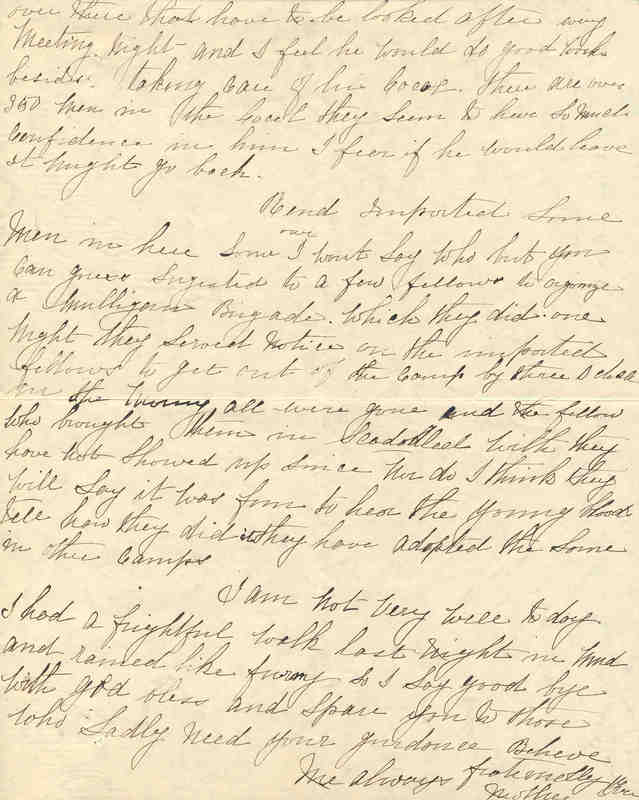 over there that have to be looked after every
Meeting Night and I feel he would do good work
besides taking care of his Local. There are over
350 Men in the Local they seem to have so Much
Confidence in him I fear if he would leave
it Might go back.
Rend Imported Some
Men in here Some one I wont Say who but you
Can guess Sugested to a few fellows to orgonize
a Mulligan Brigade. Which they did. one
Night they Served Notice on the imported
fellows to get out of the Camp by three O clock
in the all were gone and the fellow
who brought them in Scadolled with they
have Not Showed up Since Nor do I think they
Will Say it was fun to hear the young blood
tell how they did it they have adopted the Same
in other Camps
I am Not Very Well to day
I had a frightful walk last Night in Mud
and rained like So I Say good bye
With god bless and Spare you to those
Who Sadly Need your guidance Believe
Me always
Mother